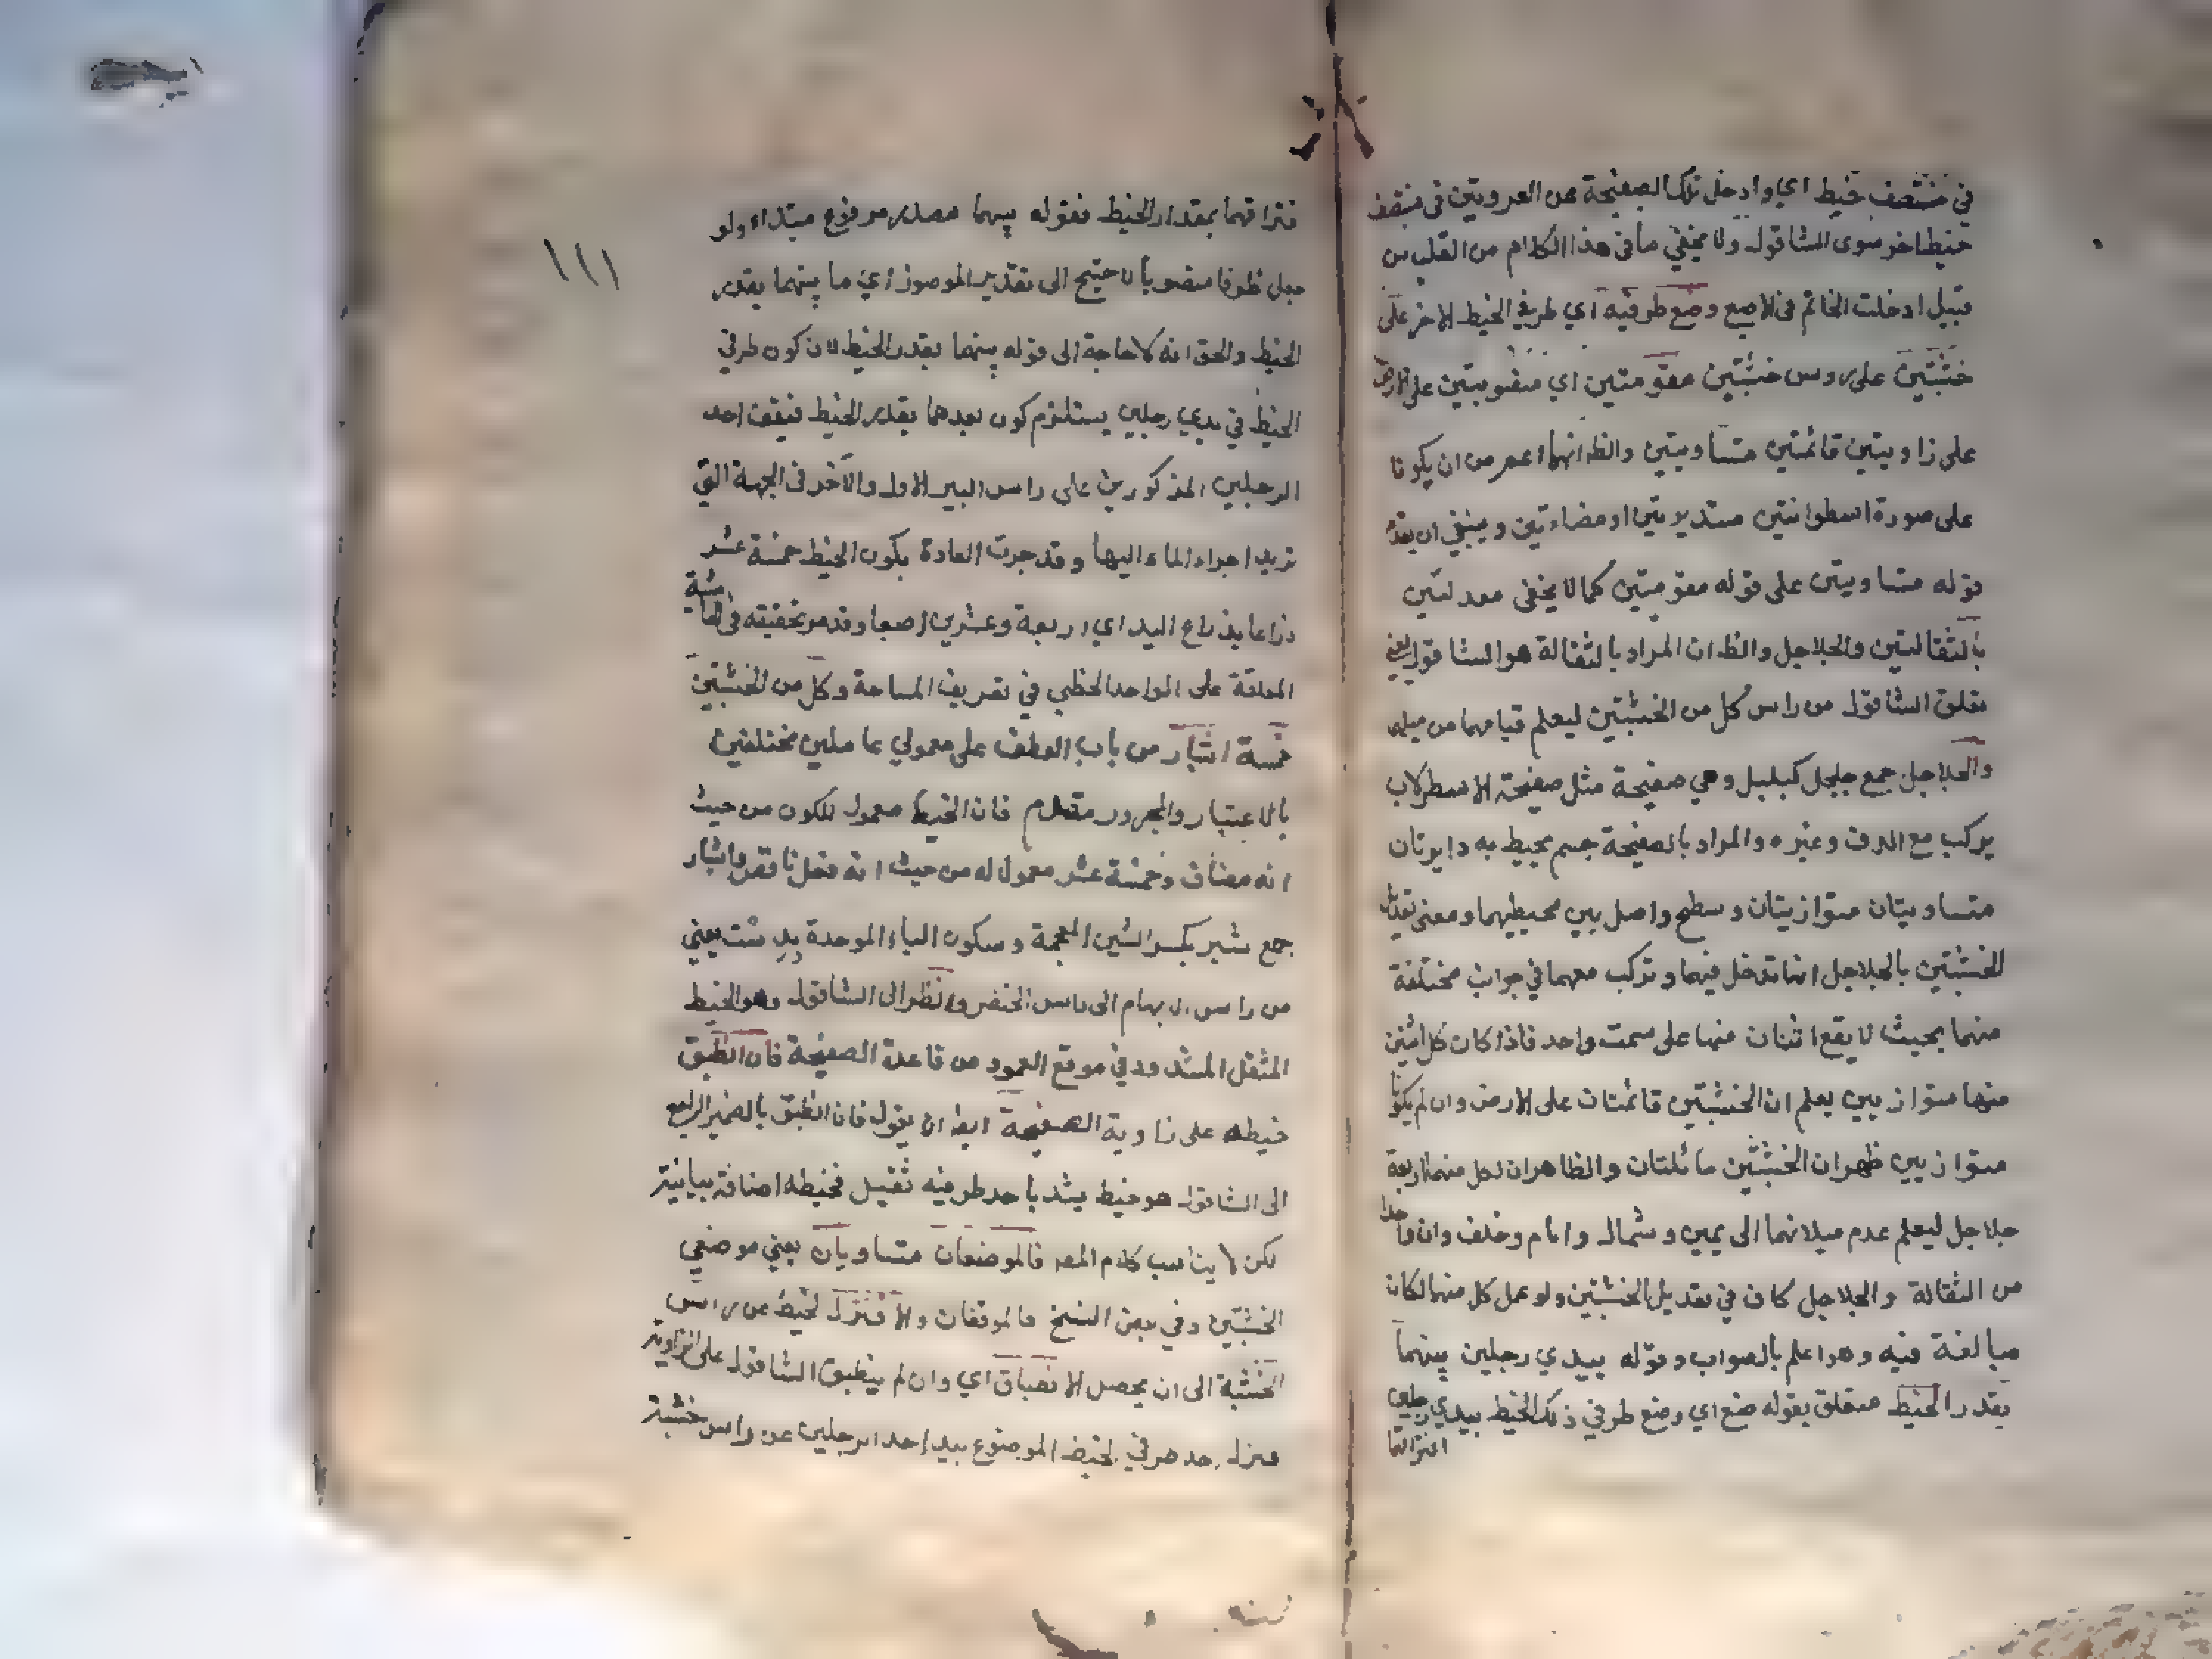 في منتصف خيط اي وادخل تلك الصفيحة من العروتين في منتصف
خيط اخر سوى الشاقول ولا يخفى ما في هذا الكلام من القلب من
قبيل ادخلت الخاتم في الاصبع وضع طرفيه اي طرفي الخيط الاخر على
خشبتين على روس خشبتين مقومتين اي منصوبتين على الارض
على زاويتين قائمتين متساويتين والظ انهما اعم من ان يكونا
على صورة اسطوانتين مستديرتين او مضلعتين وينبغي ان يقدم
قوله متساويتين على قوله مقومتين كما لا يخفى معدلتين
بالثقالتين والجلاجل والظ ان المراد بالثقالة هو الشاقول يعني
تعلق الشاقول من راس كل من الخشبتين ليعلم قيامهما من ميلهما
والجلاجل جمع جلجل كبلبل وهي صفيحة مثل صفيحة الاسطرلاب
يركب مع الدف وغيره والمراد بالصفيحة جسم يحيط به دايرتان
متساويتان متوازيتان وسطح واصل بين محيطيهما ومعنى تعديل
الخشبتين بالجلاجل انها تدخل فيهما وتركب معهما في جوانب مختلفة
منهما بحيث لا يقع اثنان منها على سمت واحد فاذا كان كل اثنين
منها متوازيين يعلم ان الخشبتين قائمتان على الارض وان لم يكونا
متوازيين ظهر ان الخشبتين مائلتان والظاهر ان لكل منهما اربعة
جلاجل ليعلم عدم ميلانهما الى يمين وشمال وامام وخلف وان واحدا
من الثقالة والجلاجل كان في تعديل الخشبتين ولو عمل كل منهما لكان
مبالغة فيه وهو اعلم بالصواب وقوله بيدي رجلين بينهما
بقدر الخيط متعلق بقوله ضع اي وضع طرفي ذلك الخيط بيدي رجلين
افتراقهما
١١١
فتراقهما بمقدار الخيط فقوله بينهما مصدر مرفوع مبتداء ولو
جعل ظرفا منصوبا لاحتيج الى تقدير الموصول اي ما بينهما بقدر
الخيط والحق انه لا حاجة الى قوله بينهما بقدر الخيط لان كون طرفي
الخيط في يدي رجلين يستلزم كون بعدهما بقدر الخيط فيقف احد
الرجلين المذكورين على راس البير الاول والآخر في الجهة التي
تريد اجراء الماء اليها وقد جرت العادة بكون الخيط خمسة عشر
ذراعا بذراع اليد اي اربعة وعشرين اصبعا وقد مر تحقيقه في الحاشية
المعلقة على الواحد الخطي في تعريف المساحة وكل من الخشبتين
خمسة اشبار من باب العطف على معمولي عاملين مختلفين
بالاعتبار والمجرور مقدم فان الخيط معمول للكون من حيث
انه مضاف وخمسة عشر معمول له من حيث انه فعل ناقص واشبار
جمع شبر بكسر الشين المعجمة وسكون الباء الموحدة بدست يعني
من راس الابهام الى راس الخنصر وانظر الى الشاقول وهو الخيط
المثقل المشدود في موقع العمود من قاعدة الصفيحة فان انطبق
خيطه على زاوية الصفيحة ايضا ان يقول فان انطبق بالضمير الراجع
الى الشاقول هو خيط يشد باحد طرفيه ثقيل فخيطه اضافة بيانية
لكن لا يناسب كلام المصـ فالموضعان متساويان يعني موضعي
الخشبتين وفي بعض النسخ فالموقفان والا فنزل الخيط عن راس
الخشبة الى ان يحصل الانطباق اي وان لم ينطبق الشاقول على الزاوية
فنزل احد طرفي الخيط الموضوع بيد احد الرجلين عن راس خشبة